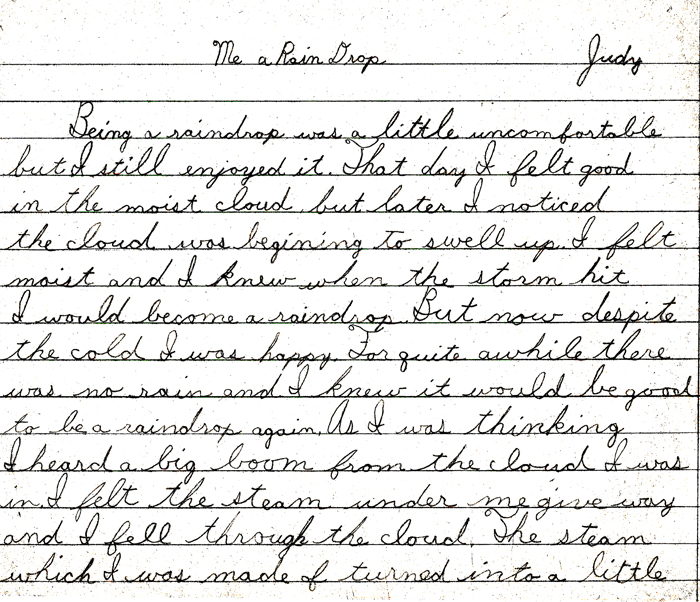 Me a Rain Drop Judy
Being a raindrop was a little uncomfortable
but I still enjoyed it. That day I felt good
in the moist cloud but later I noticed
the cloud was begining to swell up. I felt
moist and I knew when the storm hit
I would become a raindrop. But now despite
the cold I was happy. For quite awhile there
was no rain and I knew it would be good
to be a raindrop again. As I was thinking
I heard a big boom from the cloud I was
in. I felt the steam under me give way
and I fell through the cloud. The steam
which I was made of turned into a little